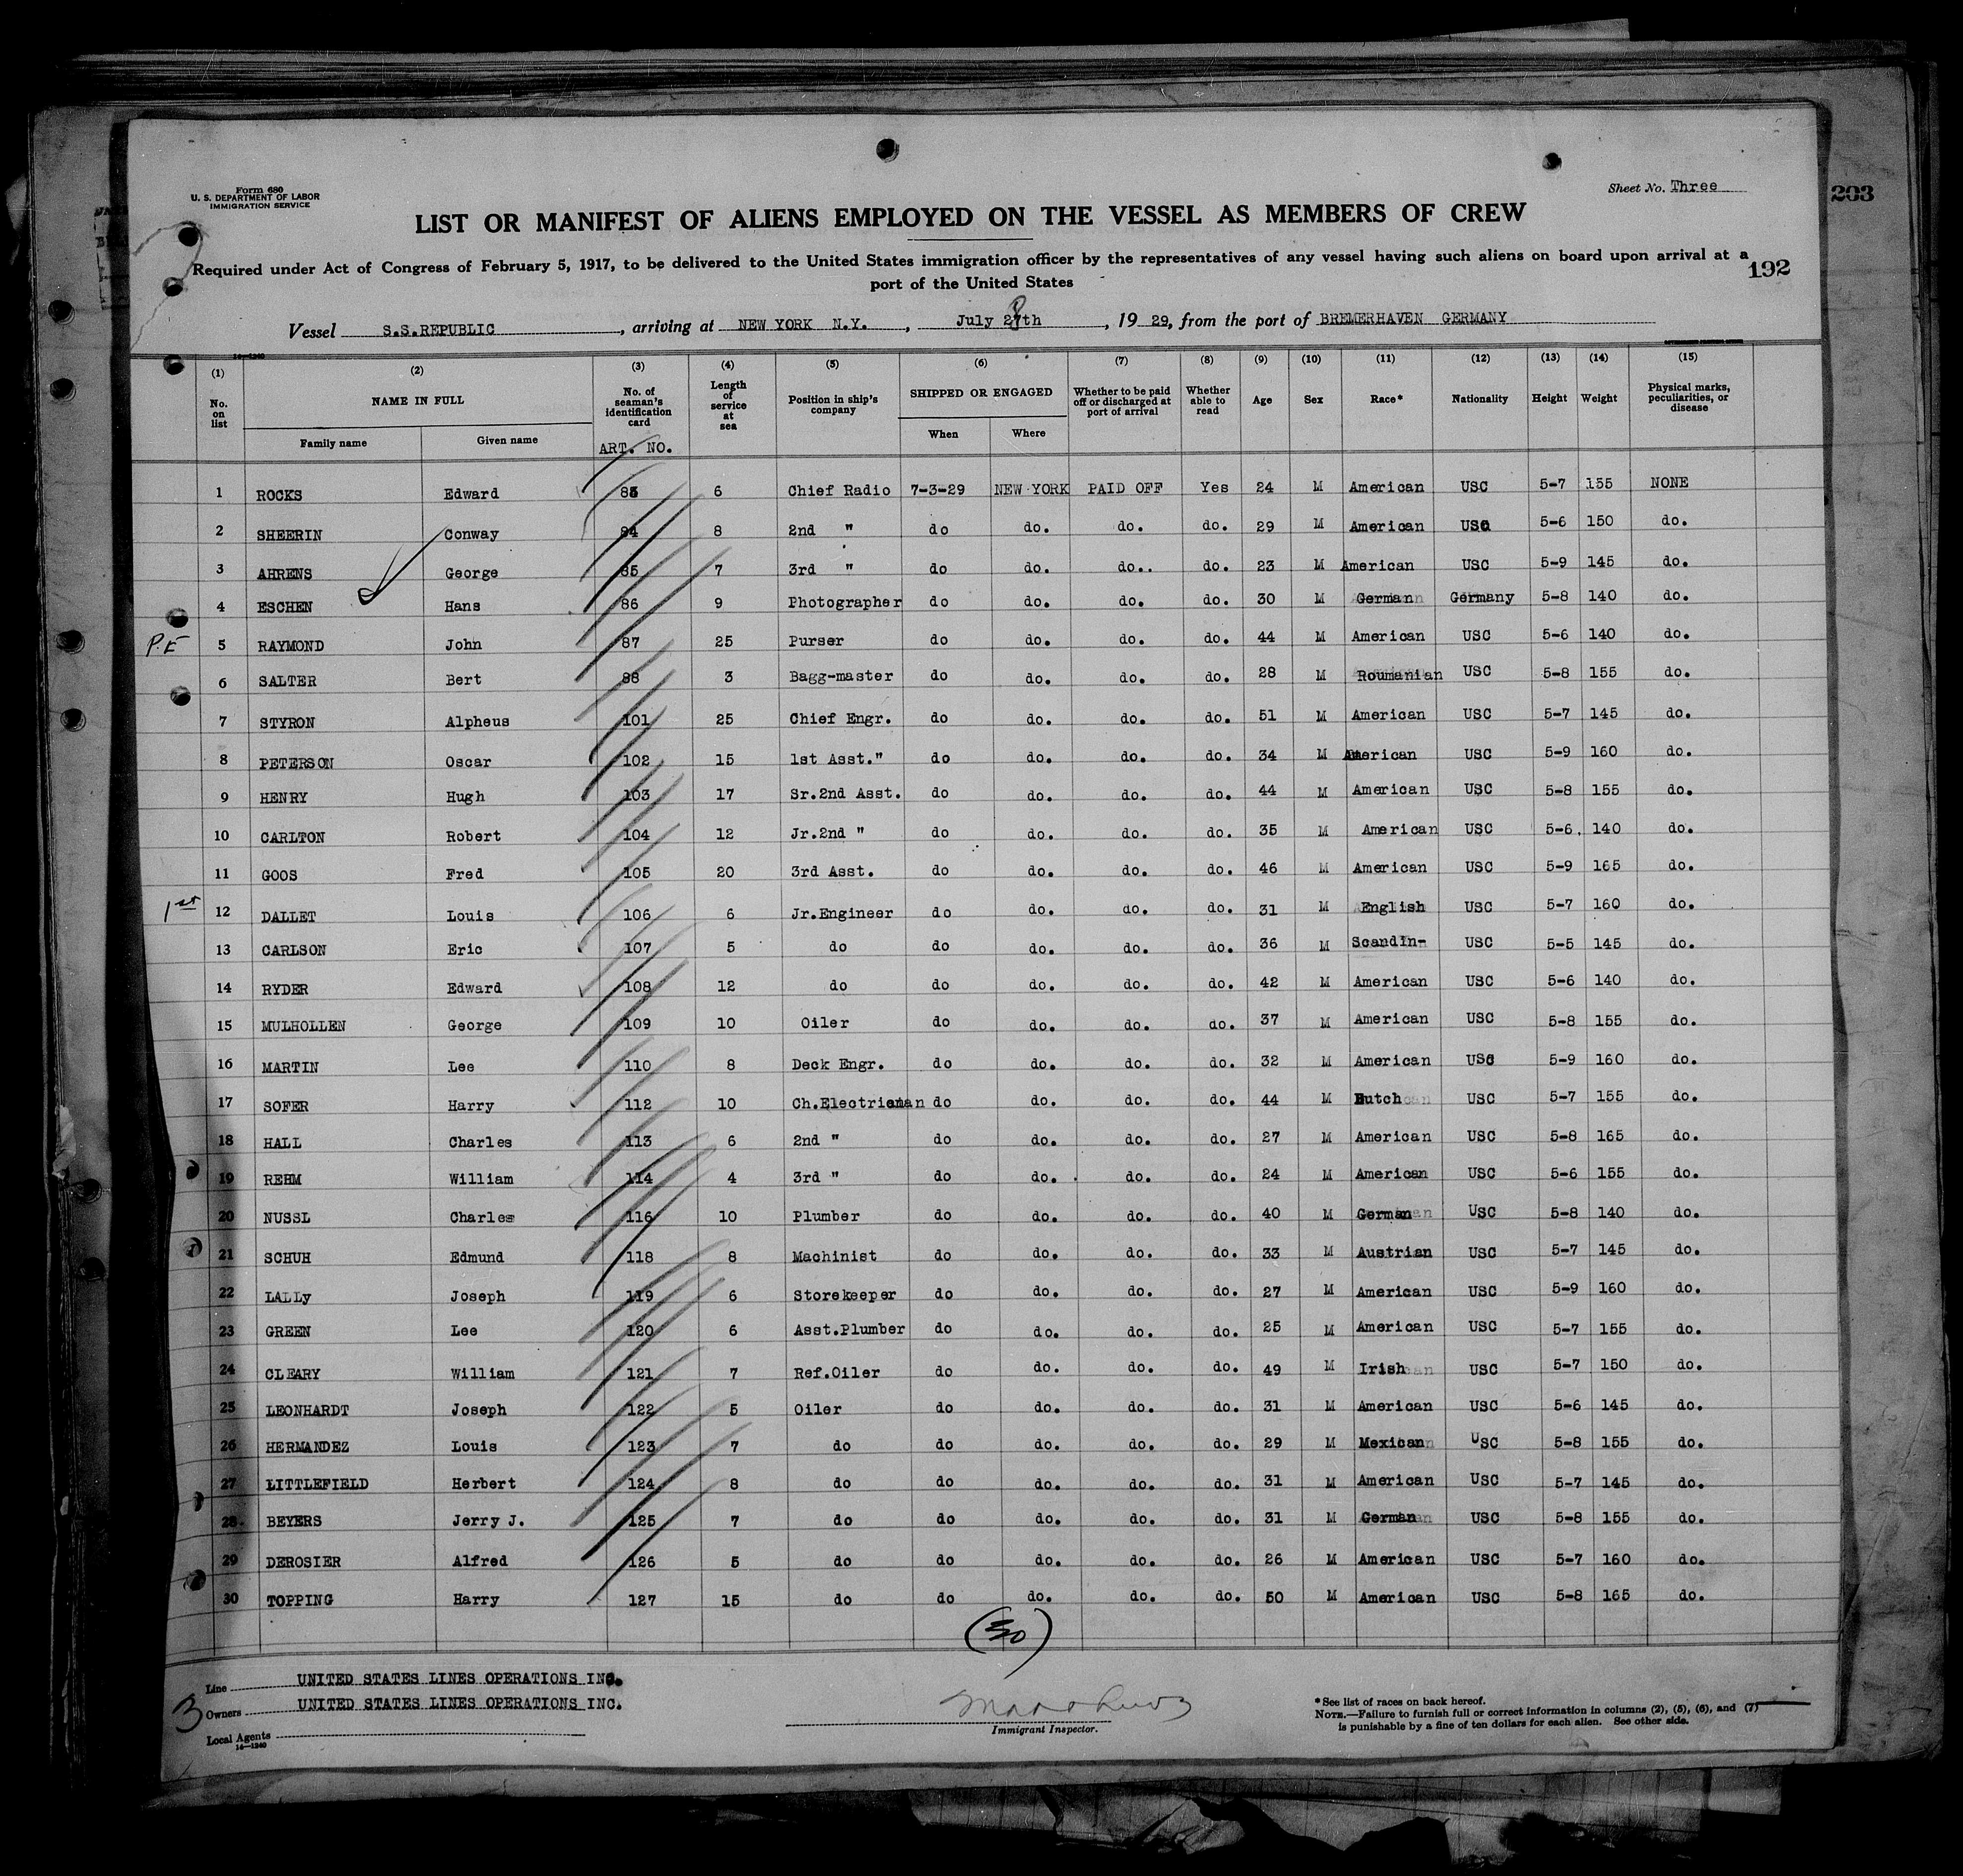 Form 680
U. S. DEPARTMENT OF LABOR
IMMIGRATION SERVICE
Sheet No. Three
203
LIST OR MANIFEST OF ALIENS EMPLOYED ON THE VESSEL AS MEMBERS OF CREW
Required under Act of Congress of February 5, 1917, to be delivered to the United States immigration officer by the representatives of any vessel having such aliens on board upon arrival at a
port of the United States
192
Vessel S.S.REPUBLIC, arriving at NEW YORK N.Y., July 28th, 1929, from the port of BREMERHAVEN GERMANY
(1) No. on list (2) NAME IN FULL Family name Given name (3) No. of seaman's identification card ART. NO. (4) Length of service at sea (5) Position in ship's company (6) SHIPPED OR ENGAGED When Where (7) Whether to be paid off or discharged at port of arrival (8) Whether able to read (9) Age (10) Sex (11) Race* (12) Nationality (13) Height (14) Weight (15) Physical marks, peculiarities, or disease
1 ROCKS Edward 83 6 Chief Radio 7-3-29 NEW YORK PAID OFF Yes 24 M American USC 5-7 155 NONE
2 SHEERIN Conway 84 8 2nd " do do. do. do. 29 M American USC 5-6 150 do.
3 AHRENS George 85 7 3rd " do do. do.. do. 23 M American USC 5-9 145 do.
4 ESCHEN Hans 86 9 Photographer do do. do. do. 30 M German Germany 5-8 140 do.
P.E 5 RAYMOND John 87 25 Purser do do. do. do. 44 M American USC 5-6 140 do.
6 SALTER Bert 88 3 Bagg-master do do. do. do. 28 M Roumanian USC 5-8 155 do.
7 STYRON Alpheus 101 25 Chief Engr. do do. do. do. 51 M American USC 5-7 145 do.
8 PETERSON Oscar 102 15 1st Asst." do do. do. do. 34 M American USC 5-9 160 do.
9 HENRY Hugh 103 17 Sr.2nd Asst. do do. do. do. 44 M American USC 5-8 155 do.
10 CARLTON Robert 104 12 Jr.2nd " do do. do. do. 35 M American USC 5-6. 140 do.
11 GOOS Fred 105 20 3rd Asst. do do. do. do. 46 M American USC 5-9 165 do.
1st 12 DALLET Louis 106 6 Jr.Engineer do do. do. do. 31 M English USC 5-7 160 do.
13 CARLSON Eric 107 5 do do do. do. do. 36 M Scandin- USC 5-5 145 do.
14 RYDER Edward 108 12 do do do. do. do. 42 M American USC 5-6 140 do.
15 MULHOLLEN George 109 10 Oiler do do. do. do. 37 M American USC 5-8 155 do.
16 MARTIN Lee 110 8 Deck Engr. do do. do. do. 32 M American USC 5-9 160 do.
17 SOFER Harry 112 10 Ch.Electricman do do. do. do. 44 M Dutch USC 5-7 155 do.
18 HALL Charles 113 6 2nd " do do. do. do. 27 M American USC 5-8 165 do.
19 REHM William 114 4 3rd " do do. do. do. 24 M American USC 5-6 155 do.
20 NUSSL Charles 116 10 Plumber do do. do. do. 40 M German USC 5-8 140 do.
21 SCHUH Edmund 118 8 Machinist do do. do. do. 33 M Austrian USC 5-7 145 do.
22 LALLy Joseph 119 6 Storekeeper do do. do. do. 27 M American USC 5-9 160 do.
23 GREEN Lee 120 6 Asst.Plumber do do. do. do. 25 M American USC 5-7 155 do.
24 CLEARY William 121 7 Ref.Oiler do do. do. do. 49 M Irish USC 5-7 150 do.
25 LEONHARDT Joseph 122 5 Oiler do do. do. do. 31 M American USC 5-6 145 do.
26 HERMANDEZ Louis 123 7 do do do. do. do. 29 M Mexican USC 5-8 155 do.
27 LITTLEFIELD Herbert 124 8 do do do. do. do. 31 M American USC 5-7 145 do.
28 BEYERS Jerry J. 125 7 do do do. do. do. 31 M German USC 5-8 155 do.
29 DEROSIER Alfred 126 5 do do do. do. do. 26 M American USC 5-7 160 do.
30 TOPPING Harry 127 15 do do do. do. do. 50 M American USC 5-8 165 do.
(30)
Line UNITED STATES LINES OPERATIONS INC.
3 Owners UNITED STATES LINES OPERATIONS INC.
Local Agents
14-1240
Immigrant Inspector.
*See list of races on back hereof.
NOTE.—Failure to furnish full or correct information in columns (2), (5), (6), and (7)
is punishable by a fine of ten dollars for each alien. See other side.